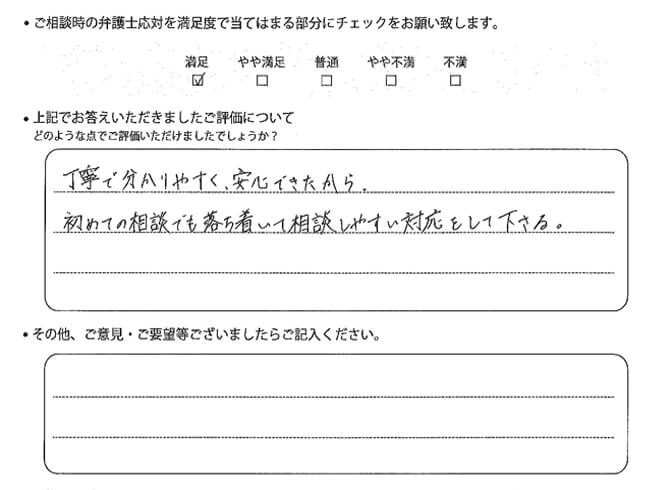 • ご相談時の弁護士応対を満足度で当てはまる部分にチェックをお願い致します。
満足 やや満足 普通 やや不満 不満
☑ ☐ ☐ ☐ ☐
• 上記でお答えいただきましたご評価について
どのような点でご評価いただけましたでしょうか?
丁寧で分かりやすく、安心できたから。
初めての相談でも落ち着いて相談しやすい対応をして下さる。
• その他、ご意見・ご要望等ございましたらご記入ください。